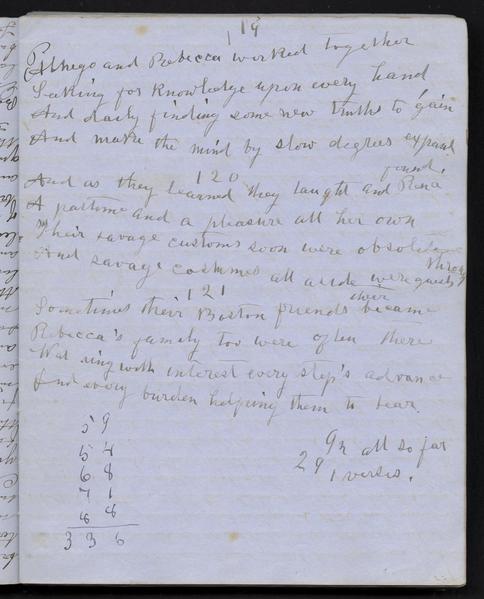 119
Othego and Rebecca worked together
Seeking for knowledge upon every hand
And daily finding some new truths to gain
And make the mind by slow degrees expand
120
And as they learned they taught and Rena found,
A pastime and a pleasure all her own
Their savage customs soon were obsolete
And savage costumes all aside were thrown
121
Sometimes their Boston friends became their guests
Rebecca's family too were often there
Watching with interest every step's advance
And every burden helping them to bear.
59
54
68
71
88
336
In all so far
291 verses.